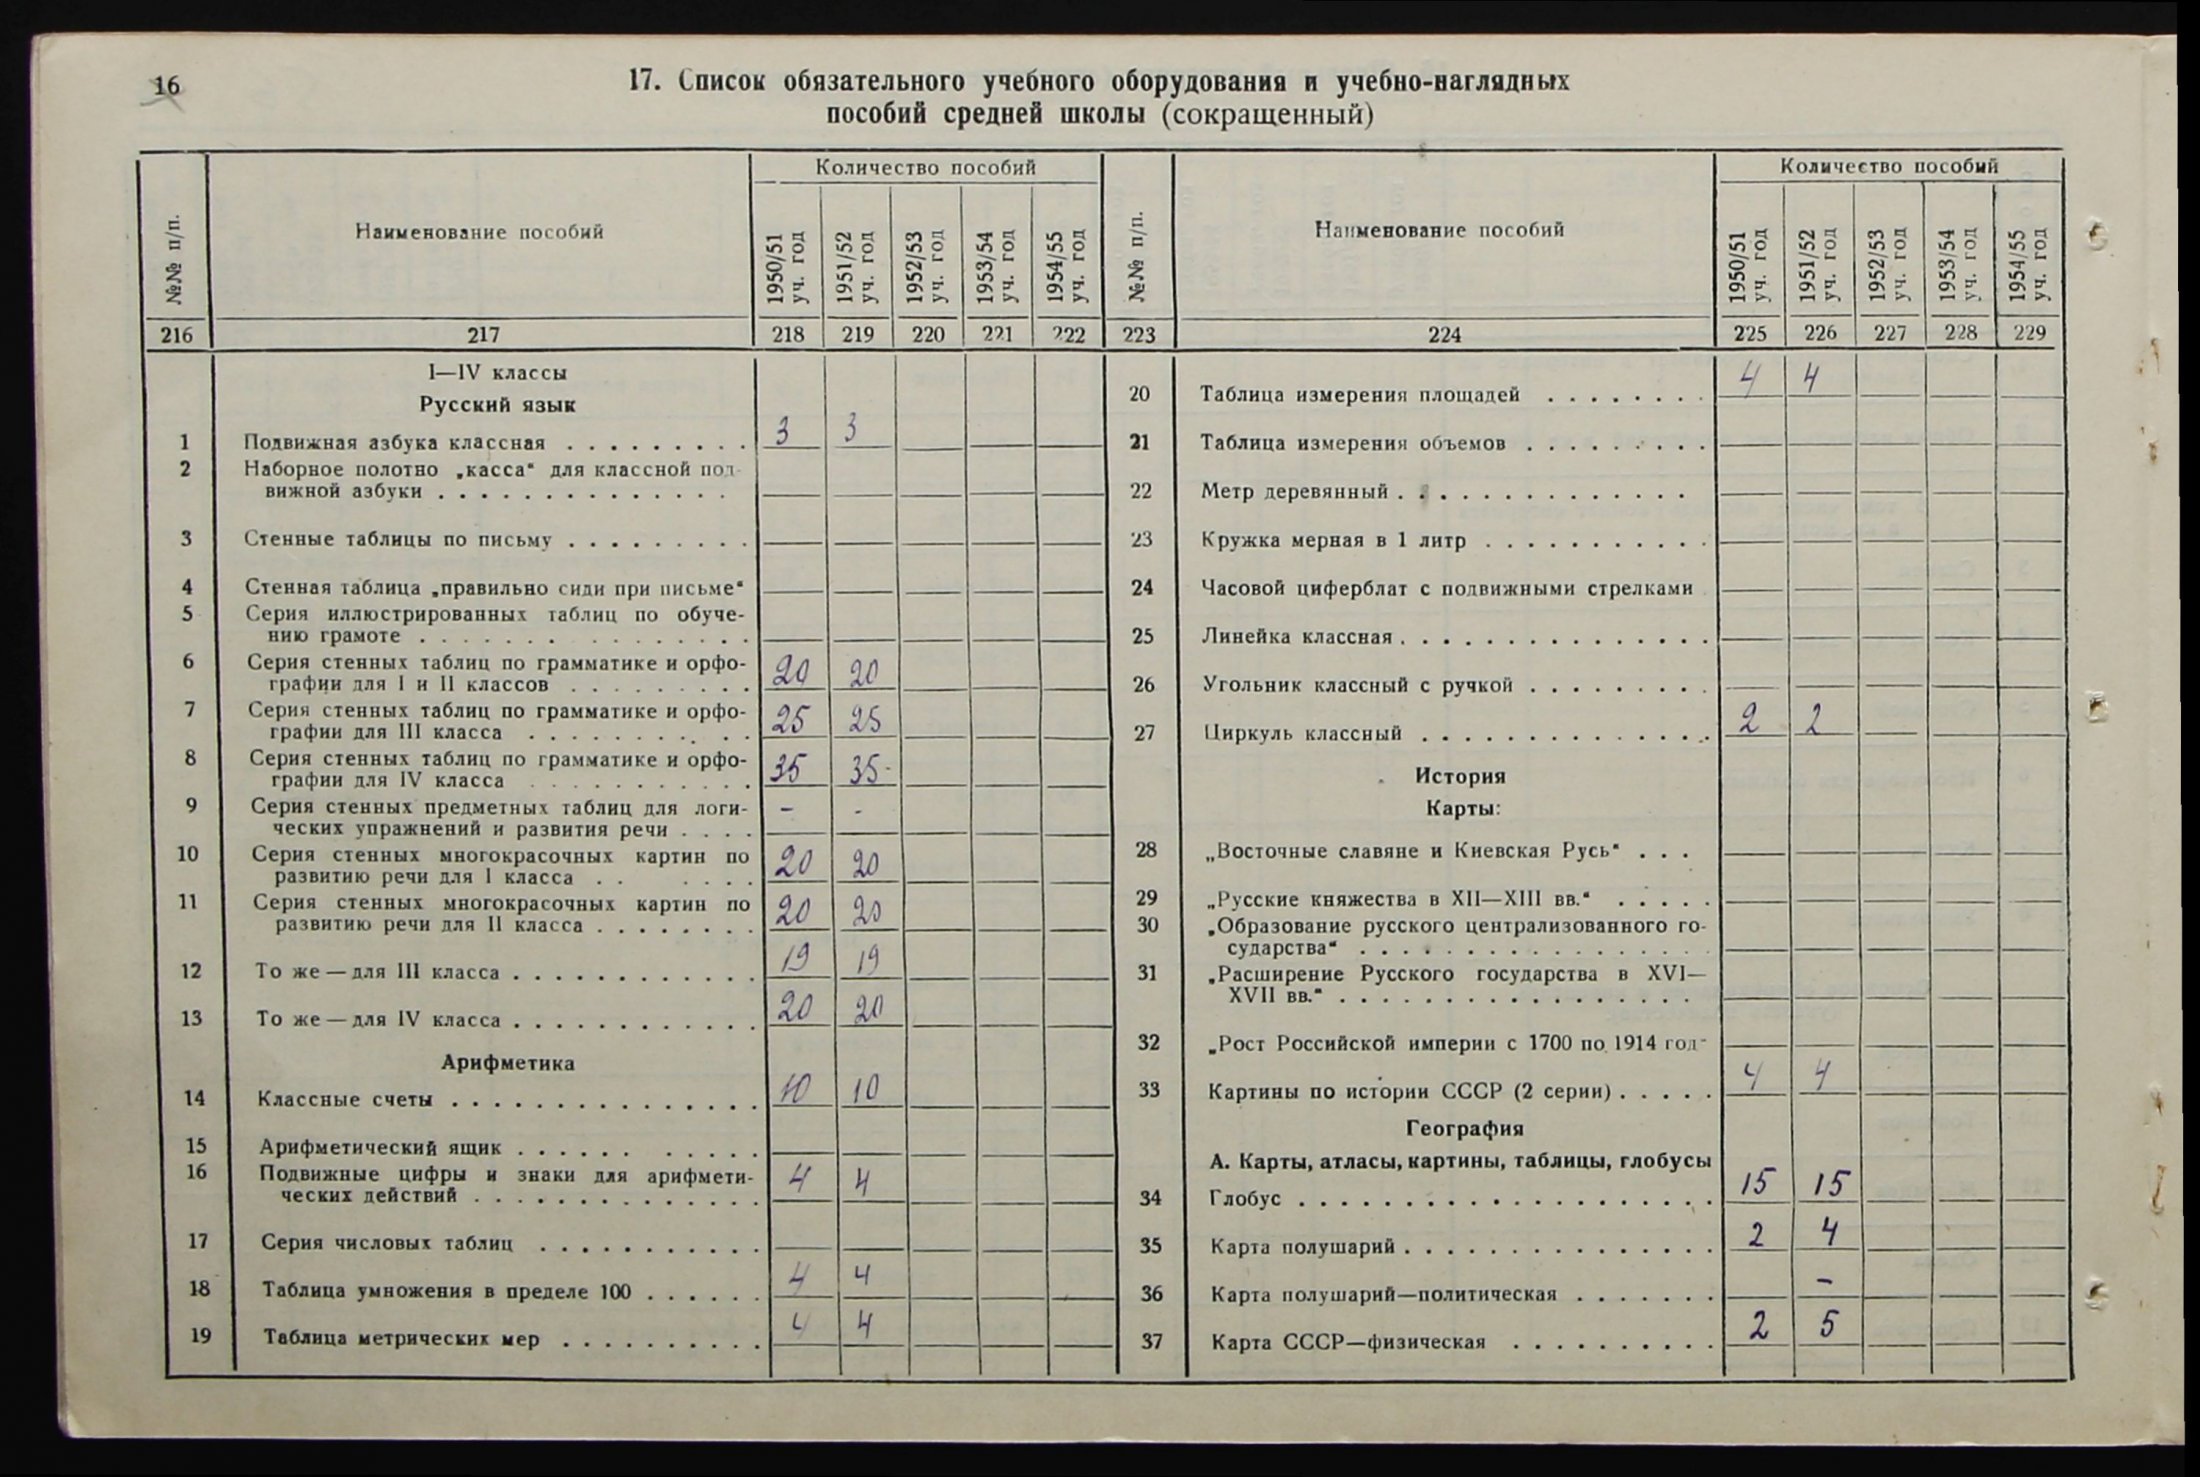 16
17. Список обязательного учебного оборудования и учебно-наглядных
пособий средней школы (сокращенный)
№№ п/п.
Наименование пособий
Количество пособий
1950/51 уч. год
1951/52 уч. год
1952/53 уч. год
1953/54 уч. год
1954/55 уч. год
216 217 218 219 220 221 222
I—IV классы
Русский язык
1 Подвижная азбука классная . . . . . . . . . 3 3
2 Наборное полотно „касса“ для классной под-
вижной азбуки . . . . . . . . . . . . . .
3 Стенные таблицы по письму . . . . . . . . .
4 Стенная таблица „правильно сиди при письме“
5 Серия иллюстрированных таблиц по обуче-
нию грамоте . . . . . . . . . . . . . . .
6 Серия стенных таблиц по грамматике и орфо-
графии для I и II классов . . . . . . . . . 20 20
7 Серия стенных таблиц по грамматике и орфо-
графии для III класса . . . . . . . . . . . 25 25
8 Серия стенных таблиц по грамматике и орфо-
графии для IV класса . . . . . . . . . . . 35 35
9 Серия стенных предметных таблиц для логи- – -
ческих упражнений и развития речи . . . .
10 Серия стенных многокрасочных картин по
развитию речи для I класса . . . . . . 20 20
11 Серия стенных многокрасочных картин по
развитию речи для II класса . . . . . . . . 20 20
12 То же — для III класса . . . . . . . . . . . . 19 19
13 То же — для IV класса . . . . . . . . . . . . 20 20
Арифметика
14 Классные счеты . . . . . . . . . . . . . . . 10 10
15 Арифметический ящик . . . . . . . . . . .
16 Подвижные цифры и знаки для арифмети-
ческих действий . . . . . . . . . . . . . . 4 4
17 Серия числовых таблиц . . . . . . . . . . .
18 Таблица умножения в пределе 100 . . . . . . 4 4
19 Таблица метрических мер . . . . . . . . . . 4 4
№№ п/п.
Наименование пособий
Количество пособий
1950/51 уч. год
1951/52 уч. год
1952/53 уч. год
1953/54 уч. год
1954/55 уч. год
223 224 225 226 227 228 229
20 Таблица измерения площадей . . . . . . . . 4 4
21 Таблица измерения объемов . . . . . . . . .
22 Метр деревянный . . . . . . . . . . . . . .
23 Кружка мерная в 1 литр . . . . . . . . . . .
24 Часовой циферблат с подвижными стрелками
25 Линейка классная . . . . . . . . . . . . . . .
26 Угольник классный с ручкой . . . . . . . . .
27 Циркуль классный . . . . . . . . . . . . . . 2 2
История
Карты:
28 „Восточные славяне и Киевская Русь“ . . .
29 „Русские княжества в XII—XIII вв.“ . . . . .
30 „Образование русского централизованного го-
сударства“ . . . . . . . . . . . . . . . .
31 „Расширение Русского государства в XVI—
XVII вв.“ . . . . . . . . . . . . . . . . .
32 „Рост Российской империи с 1700 по 1914 год“
33 Картины по истории СССР (2 серии) . . . . . 4 4
География
А. Карты, атласы, картины, таблицы, глобусы
34 Глобус . . . . . . . . . . . . . . . . . . . 15 15
35 Карта полушарий . . . . . . . . . . . . . . . 2 4
36 Карта полушарий—политическая . . . . . . . –
37 Карта СССР—физическая . . . . . . . . . . 2 5